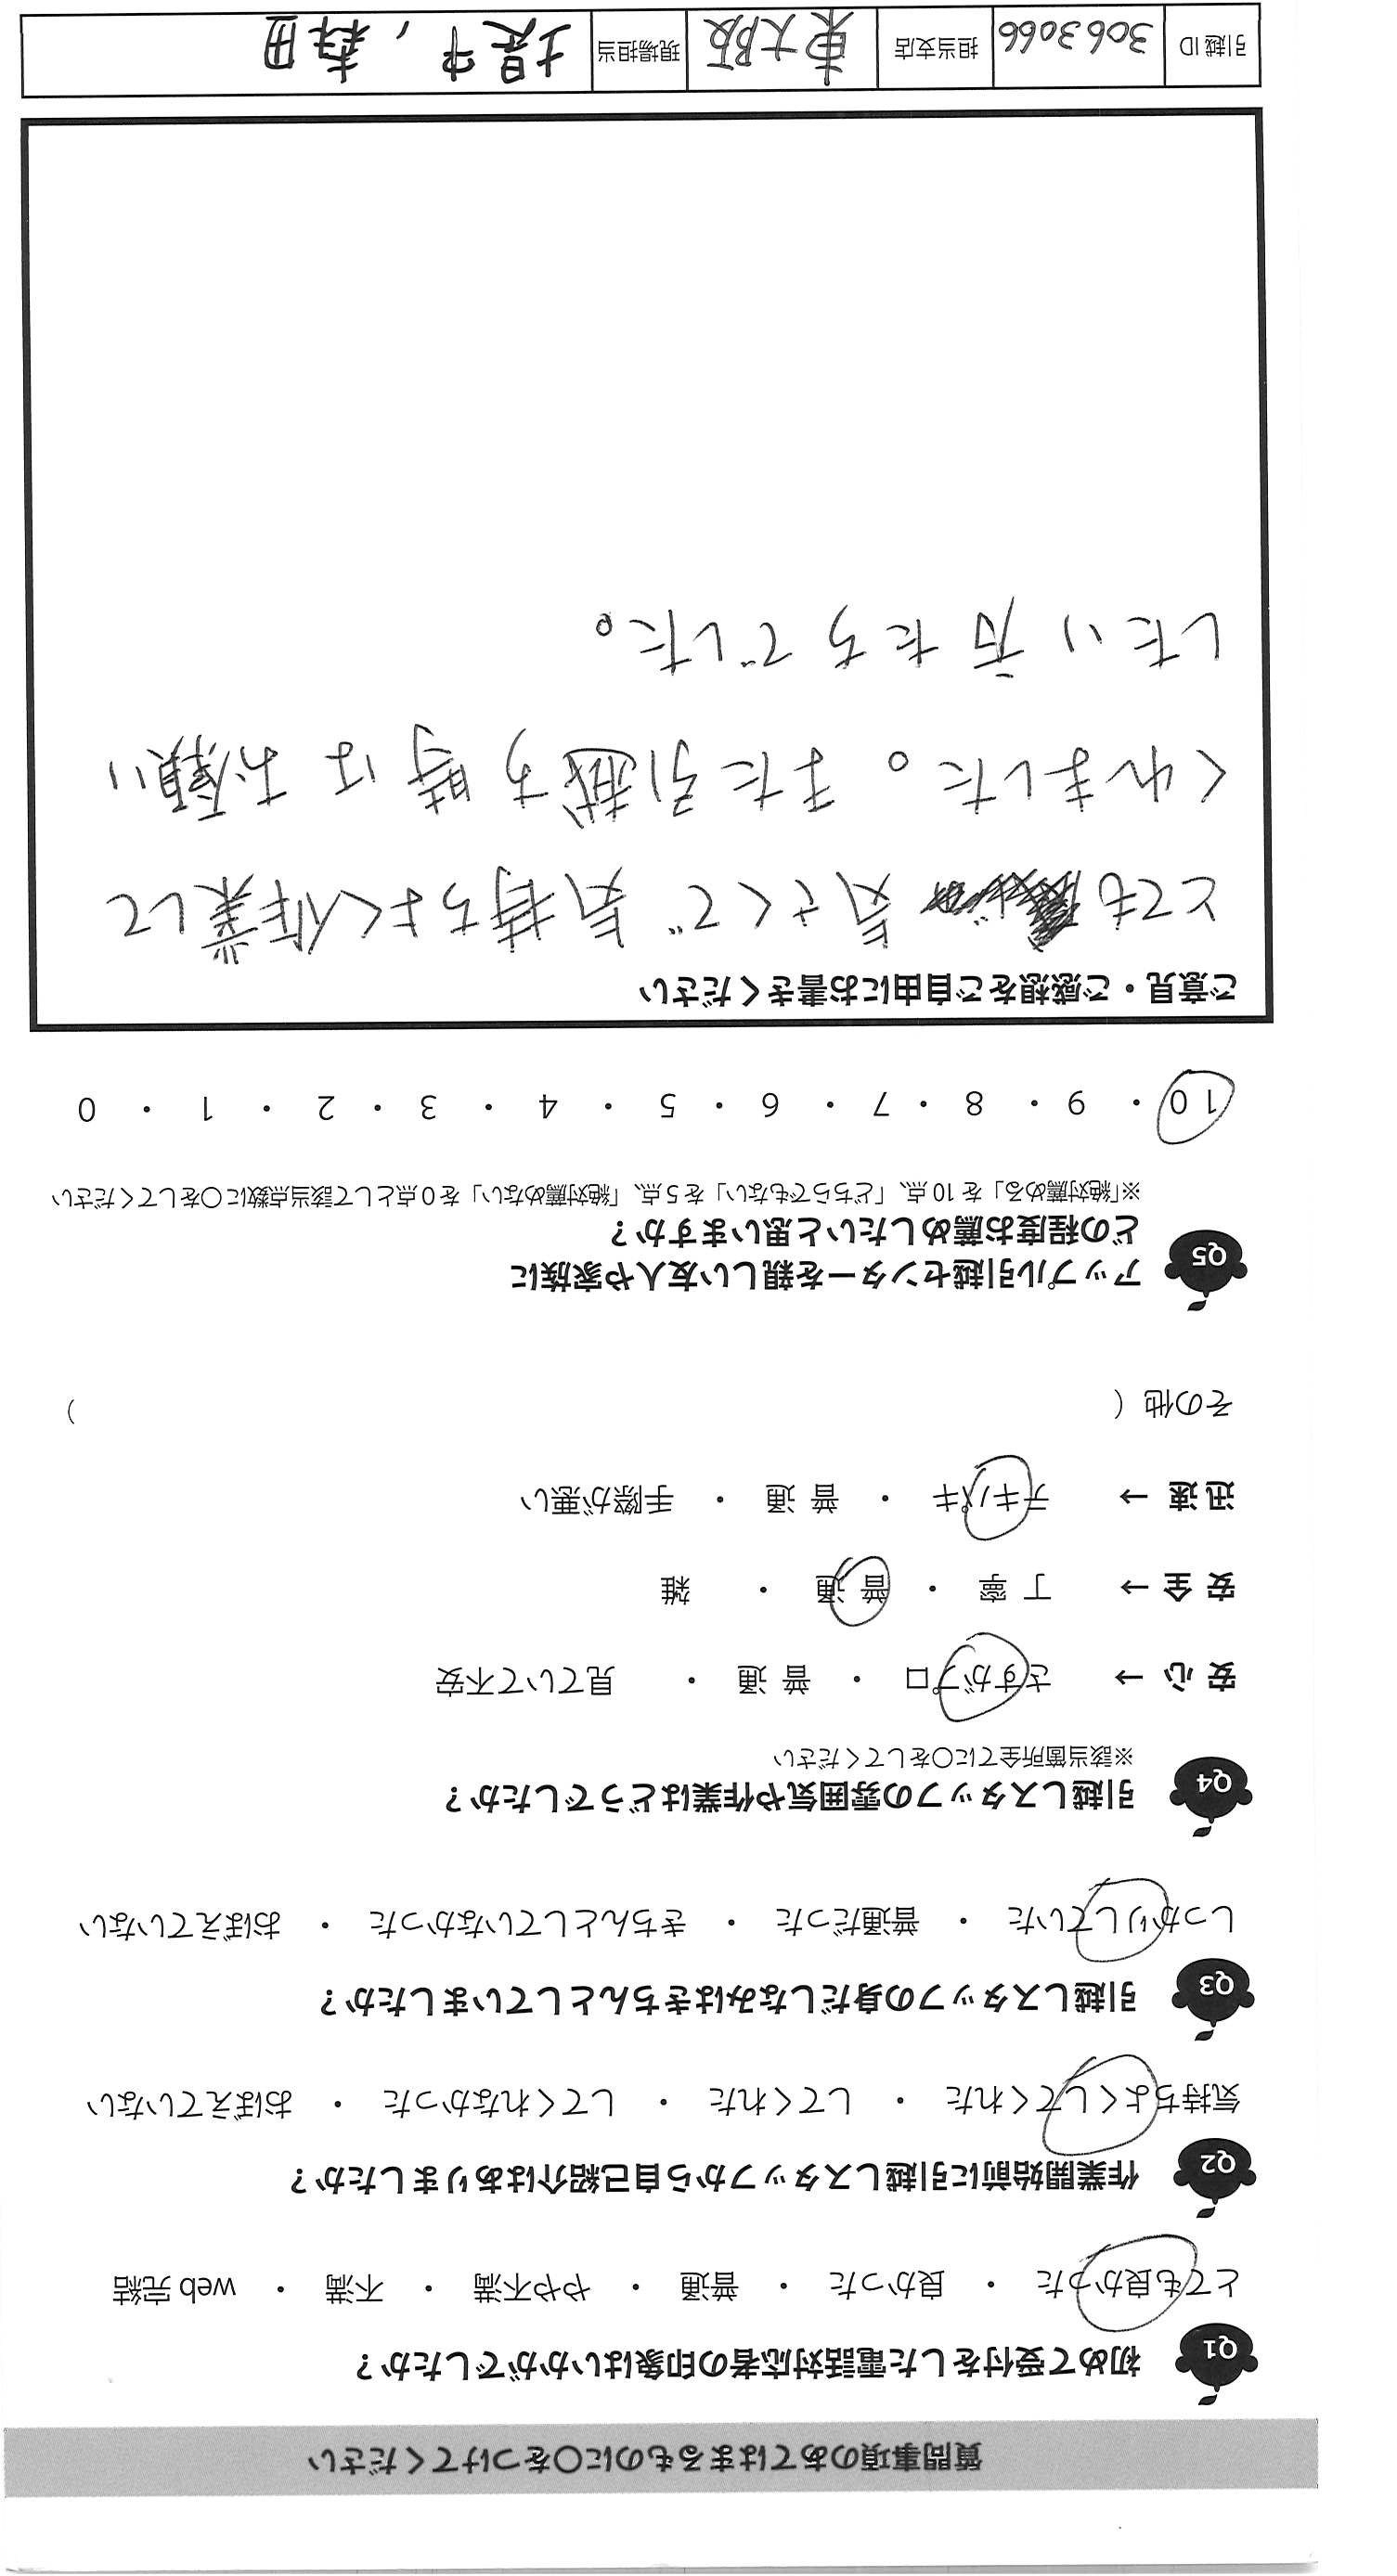 質問事項のあてはまるものに〇をつけてください
Q1 初めて受付をした電話対応者の印象はいかがでしたか？
とても良かった ・ 良かった ・ 普通 ・ やや不満 ・ 不満 ・ web 完結
Q2 作業開始前に引越しスタッフから自己紹介はありましたか？
気持ちよくしてくれた ・ してくれた ・ してくれなかった ・ おぼえていない
Q3 引越しスタッフの身だしなみはきちんとしていましたか？
しっかりしていた ・ 普通だった ・ きちんとしていなかった ・ おぼえていない
Q4 引越しスタッフの雰囲気や作業はどうでしたか？
※該当箇所全てに〇をしてください
安 心 → さすがプロ ・ 普 通 ・ 見ていて不安
安 全 → 丁 寧 ・ 普 通 ・ 雑
迅 速 → テキパキ ・ 普 通 ・ 手際が悪い
その他（ ）
Q5 アップル引越センターを親しい友人や家族に
どの程度お薦めしたいと思いますか？
※「絶対薦める」を 10 点、「どちらでもない」を 5 点、「絶対薦めない」を 0 点として該当点数に〇をしてください
10 ・ 9 ・ 8 ・ 7 ・ 6 ・ 5 ・ 4 ・ 3 ・ 2 ・ 1 ・ 0
ご意見・ご感想をご自由にお書きください
とても 気さくで 気持ちよく作業して
くれました。 また引越す時はお願い
したい方たちでした。
引越 ID 3063066 担当支店 東大阪 現場担当 堤下, 森田